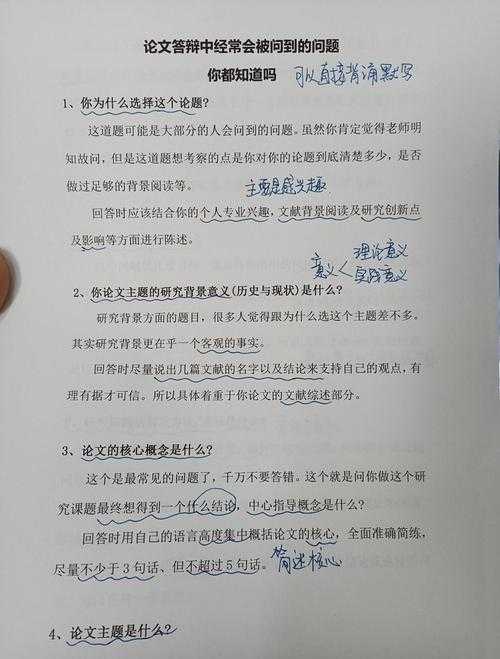 论文答辩中经常会被问到的问题
你都知道吗 可以直接背诵默写
1、你为什么选择这个论题?
这道题可能是大部分的人会问到的问题。虽然你肯定觉得老师明
知故问，但是这道题想考察的点是你对你的论题到底清楚多少，是否
做过足够的背景阅读等。
主要是感兴趣
回答时应该结合你的个人专业兴趣，文献背景阅读及研究创新点
及影响等方面进行陈述。
意义<理论意义
实践意义
2、你论文主题的研究背景意义(历史与现状)是什么?
研究背景方面的题目，很多人觉得跟为什么选这个主题差不多。
其实研究背景更在乎一个客观的事实。
回答时尽量说出几篇文献的名字以及结论来支持自己的观点，有
理有据才可信。所以具体着重于你论文的文献综述部分。
3、论文的核心概念是什么?
这个是最常见的问题了，千万不要答错。这个就是问你做这个研
究课题最终想得到一个什么结论，中心指导概念是什么?
回答时用自己的语言高度集中概括论文的核心，全面准确简练，
尽量不少于3句话、但不超过5句话。 简述核心
4、论文主题是什么?